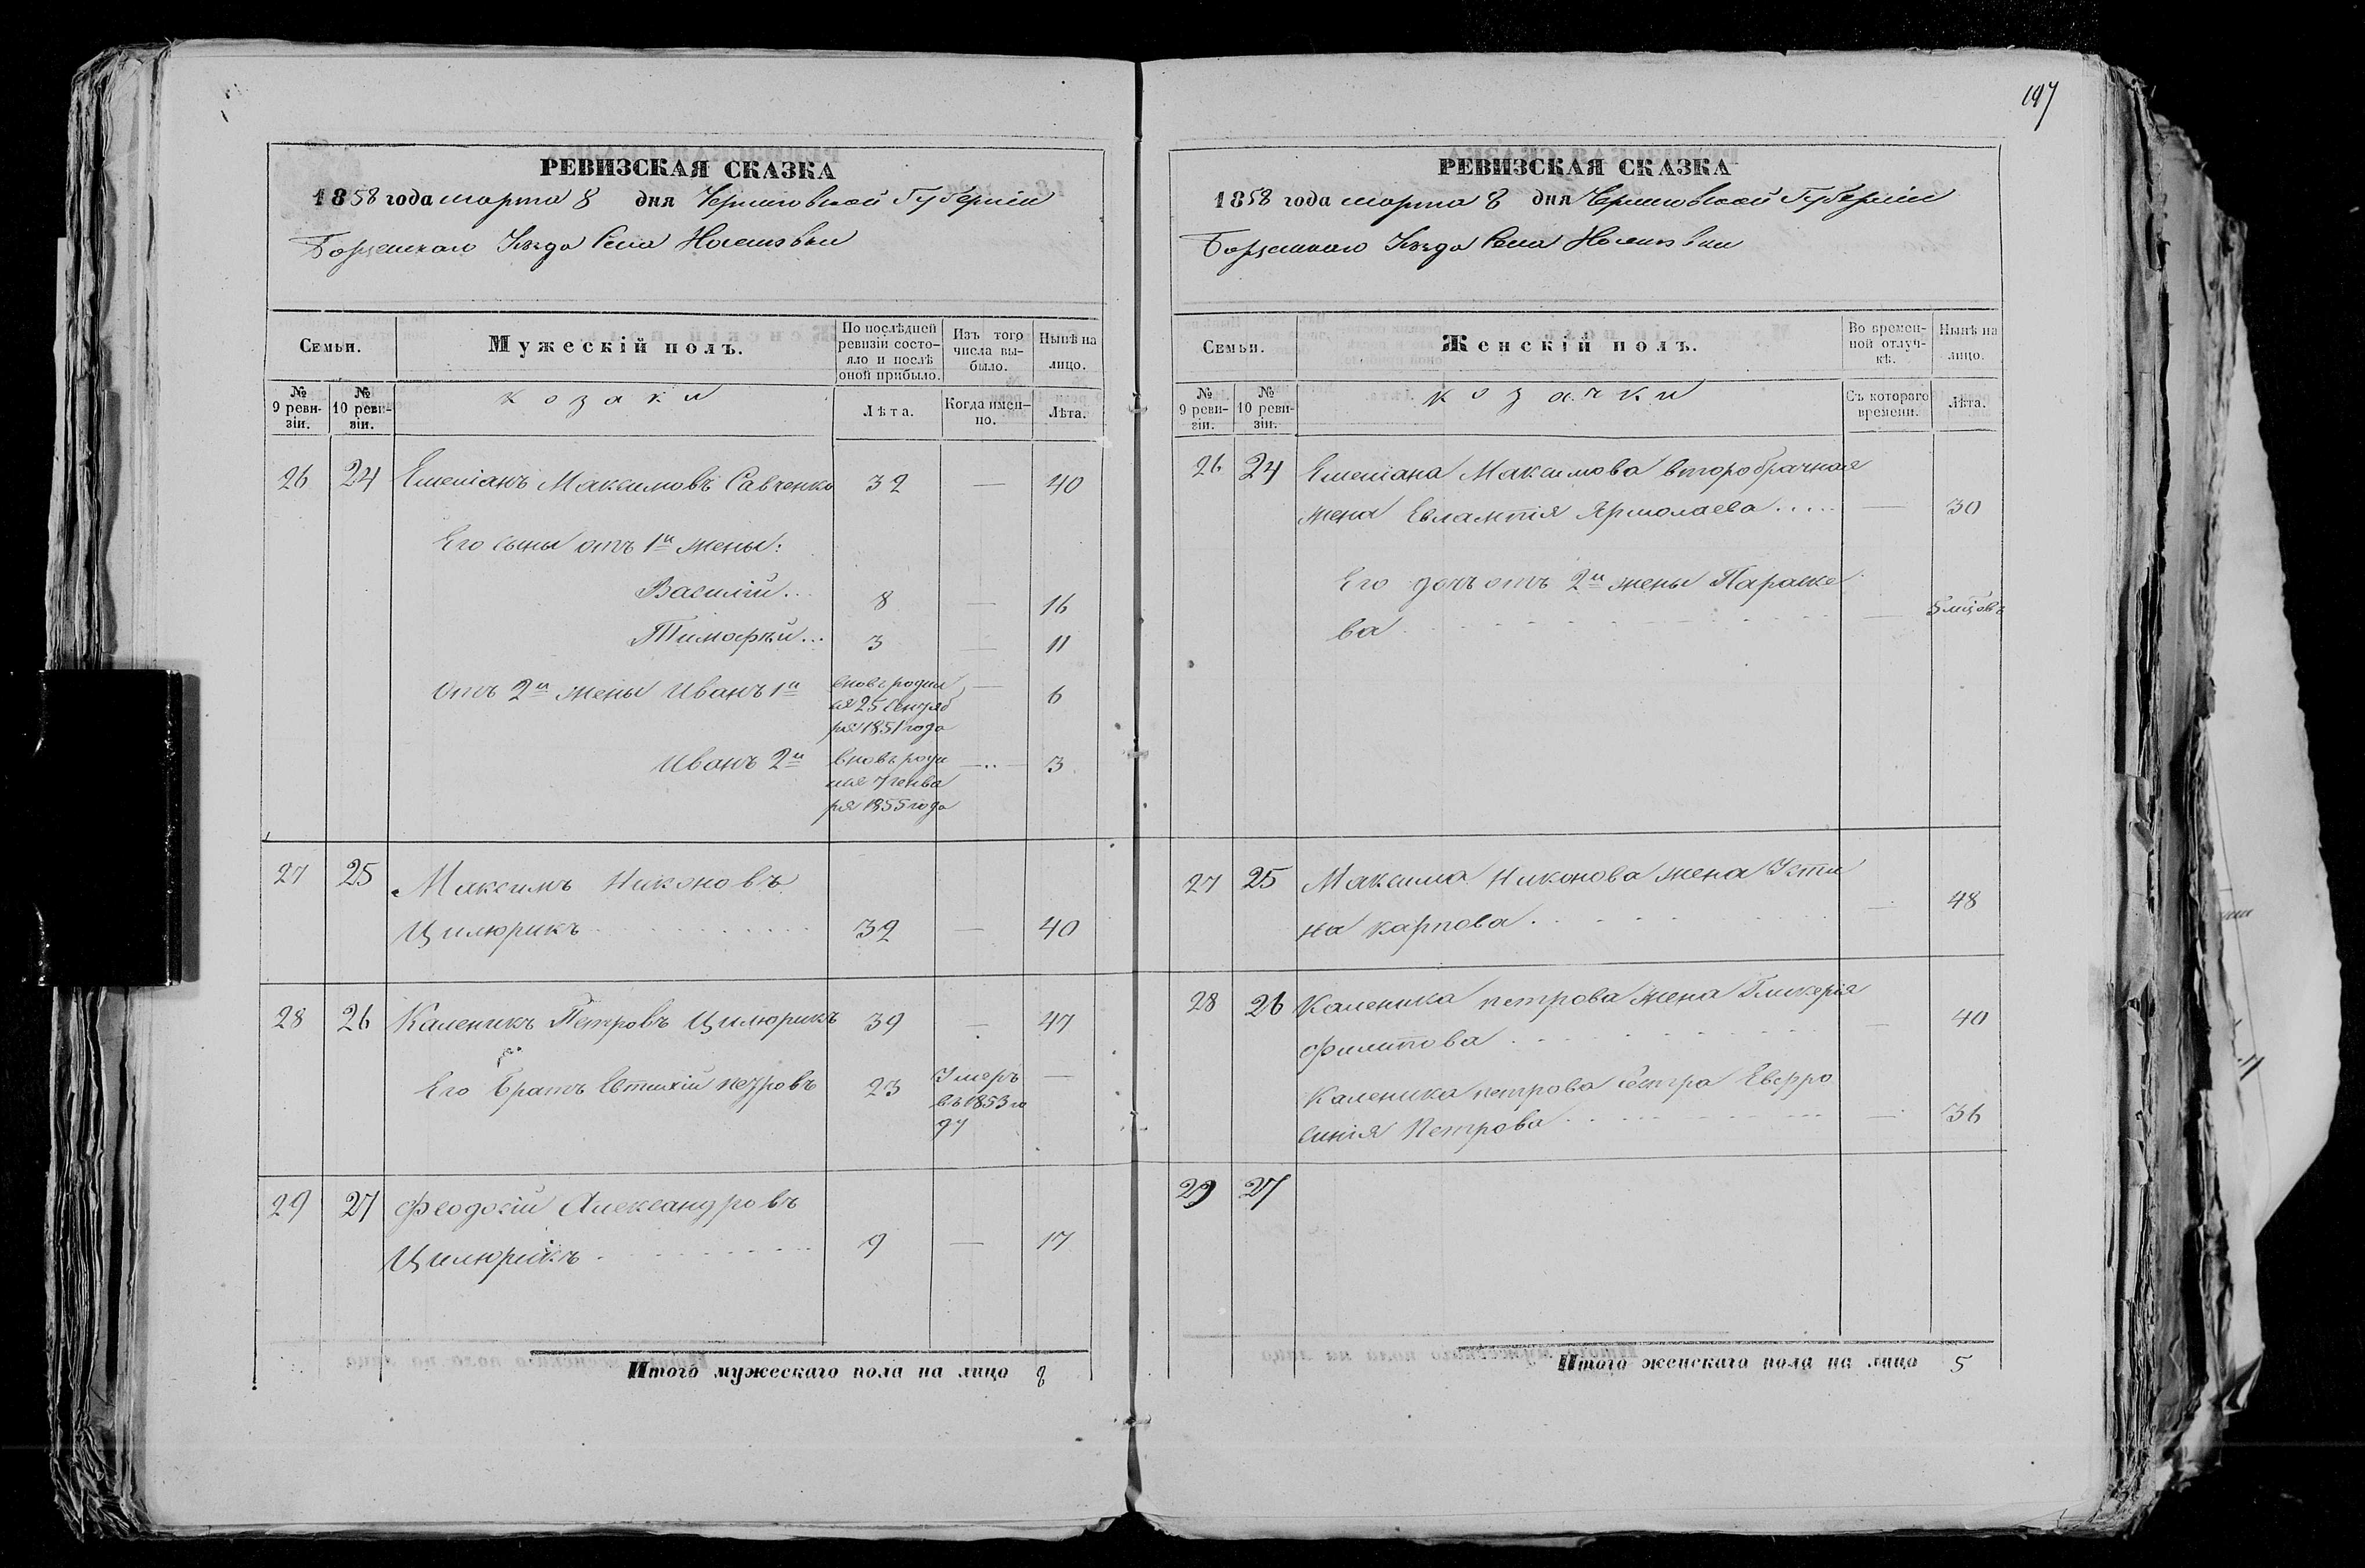 197
РЕВИЗСКАЯ СКАЗКА
1858 года марта 8 дня Черниговской Губерніи
Борзенскаго Уезда Села Носеловки
Семьи.
Мужескій полъ.
По послѣдней ревизіи состо-
яло и послѣ
оной прибыло.
Изъ того
числа вы-
было.
Нынѣ на
лицо.
№
9 реви-
зіи.
№
10 реви-
зіи.
козаки
Лѣта.
Когда имен-
но.
Лѣта.
26 24 Емеліанъ Максимовъ Савченко 32 — 40
Его сыны отъ 1й жены:
Василій... 8 — 16
Тимофѣй... 3 — 11
отъ 2й жены Иванъ 1й — 6
вновь родил
ся 25 Сентяб
ря 1851 года
Иванъ 2й — 3
вновь роди
лся 7 генва
ря 1855 года
27 25 Максимъ Никоновъ
Цилюрикъ 32 — 40
28 26 Каленикъ Петровъ Цилюрикъ 39 — 47
Его братъ Евтихій петровъ 23 —
Умеръ
въ 1853 го
ду
29 27 Феодосій Александровъ
Цилюрикъ 9 — 17
Итого мужескаго пола на лицо 8
РЕВИЗСКАЯ СКАЗКА
1858 года марта 8 дня Черниговской Губерніи
Борзенскаго Уезда Села Носеловки
Семьи.
Женскій полъ.
Во времен-
ной отлуч-
кѣ.
Нынѣ на
лицо.
№
9 реви-
зіи.
№
10 реви-
зіи.
козачки
Съ котораго
времени.
Лѣта.
26 24 Емеліана Максимова второбрачная
жена Евлампія Ярмолаева..... — 30
Его дочь отъ 2й жены Параске
ва — 5 мцовъ
27 25 Максима Никонова жена Усти
на карпова — 48
28 26 Каленика петрова жена Гликерія
Филипова — 40
Каленика петрова сестра Евфро
синія Петрова — 36
29 27
Итого женскаго пола на лицо 5